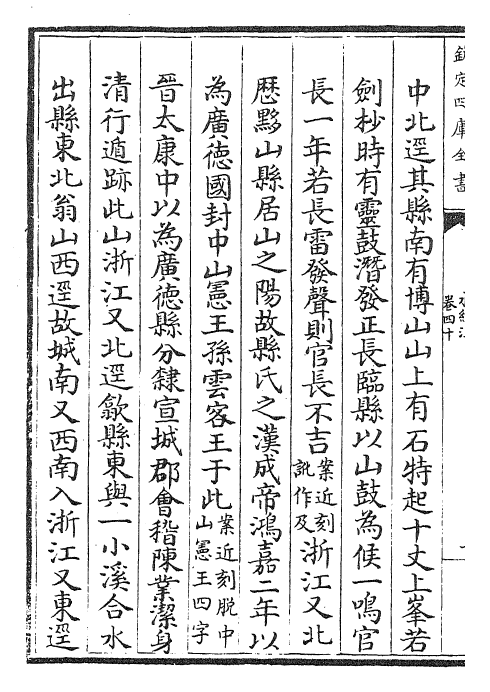 欽定四庫全書
卷四十
中北逕其縣南有博山山上有石特起十丈上峯若
劍杪時有靈鼓潛發正長臨縣以山鼓為候一鳴官
長一年若長雷發聲則官長不吉案近刻訛作及浙江又北
歴黟山縣居山之陽故縣氏之漢成帝鴻嘉二年以
為廣徳國封中山憲王孫雲客王于此案近刻脱中山憲王四字
晉太康中以為廣徳縣分隸宣城郡會稽陳業潔身
清行遁跡此山浙江又北逕歙縣東與一小溪合水
出縣東北翁山西逕故城南又西南入浙江又東逕